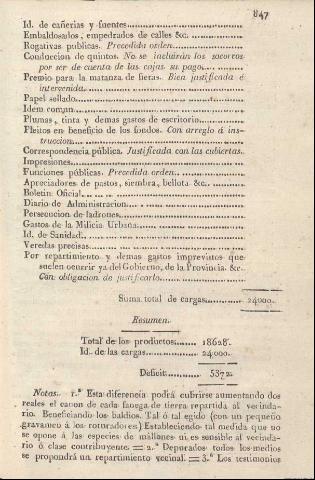 847
Id. de cañerias y fuentes
Embaldosados, empedrados de calles &c.
Rogativas publicas. Precedida orden
Conduccion de quintos. No se incluirán los socorros
por ser de cuenta de las cajas su pago
Premio para la matanza de fieras. Bien justificada é
intervenida
Papel sellado
Idem comun
Plumas, tinta y demas gastos de escritorio
Pleitos en beneficio de los fondos. Con arreglo á ins-
truccion
Correspondencia pública. Justificada con las cubiertas.
Impresiones
Funciones públicas. Precedida orden
Apreciadores de pastos, siembra, bellota &c.
Boletin Oficial
Diario de Administracion
Persecucion de ladrones
Gastos de la Milicia Urbana
Id. de Sanidad
Veredas precisas
Por repartimiento y demas gastos imprevistos que
suelen ocurrir ya del Gobierno, de la Provincia &c.
Con obligacion de justificarlo
Suma total de cargas 24000.
Resumen.
Total de los productos 18628.
Id. de las cargas 24000.
Deficit 5372.
Notas. 1.ª Esta diferencia podrá cubrirse aumentando dos
reales el canon de cada fanega de tierra repartida al vecinda-
rio. Beneficiando los baldios. Tal ó tal egido (con un pequeño
gravamen á los roturadores) Estableciendo tal medida que no
se opone á las especies de millanes ni es sensible al vecinda-
rio ó clase contribuyente. = 2.ª Depurados todos los medios
se propondrá un repartimiento vecinal. = 3.ª Los testimonios